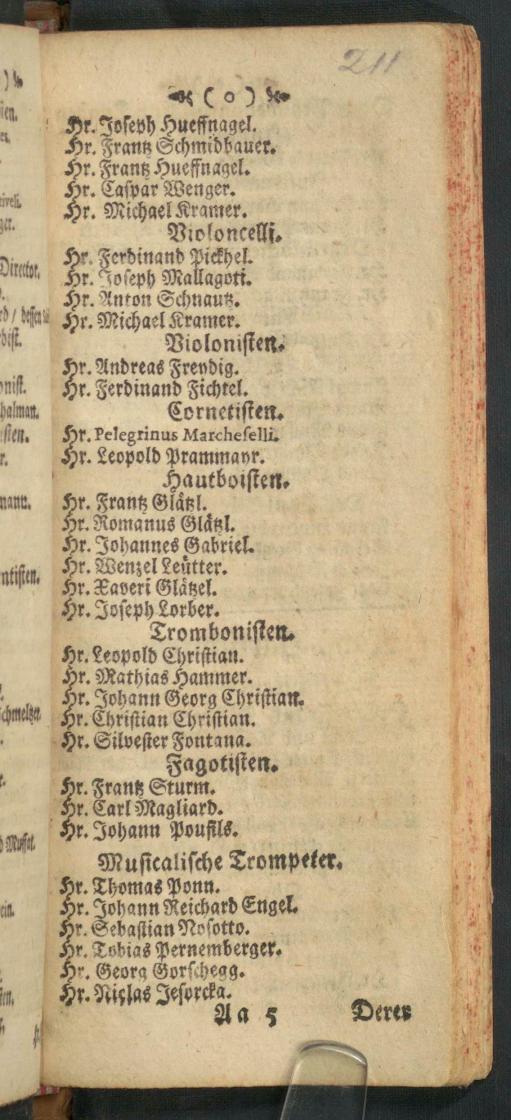 211
( o )
Hr. Joseph Hueffnagel.
Hr. Frantz Schmidbauer.
Hr. Frantz Hueffnagel.
Hr. Caspar Wenger.
Hr. Michael Kramer.
Violoncelli.
Hr. Ferdinand Pickhel.
Hr. Joseph Mallagoti.
Hr. Anton Schnautz.
Hr. Michael Kramer.
Violonisten.
Hr. Andreas Freydig.
Hr. Ferdinand Fichtel.
Cornetisten.
Hr. Pelegrinus Marcheselli.
Hr. Leopold Prammayr.
Hautboisten.
Hr. Frantz Glätzl.
Hr. Romanus Glätzl.
Hr. Johannes Gabriel.
Hr. Wenzel Leütter.
Hr. Xaveri Glätzel.
Hr. Joseph Lorber.
Trombonisten.
Hr. Leopold Christian.
Hr. Mathias Hammer.
Hr. Johann Georg Christian.
Hr. Christian Christian.
Hr. Silvester Fontana.
Fagotisten.
Hr. Frantz Sturm.
Hr. Carl Magliard.
Hr. Johann Poufils.
Musicalische Trompeter.
Hr. Thomas Ponn.
Hr. Johann Reichard Engel.
Hr. Sebastian Nosotto.
Hr. Tobias Pernemberger.
Hr. Georg Gorschegg.
Hr. Niclas Jesorcka.
Aa 5 Derer